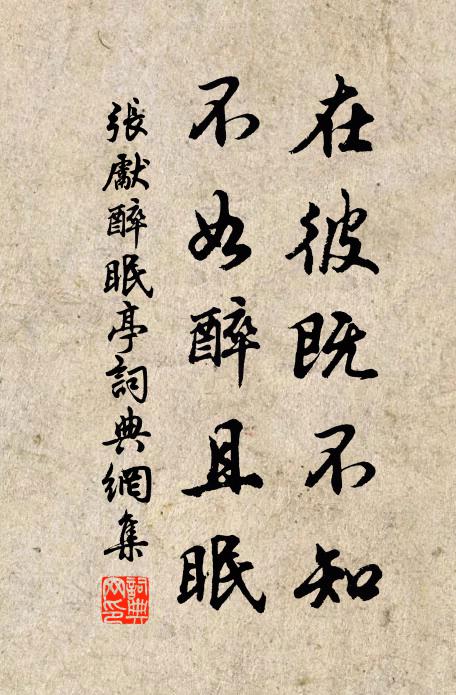 在彼既不知
不如醉且眠
張獻醉眠亭詞典網集
詞典網印